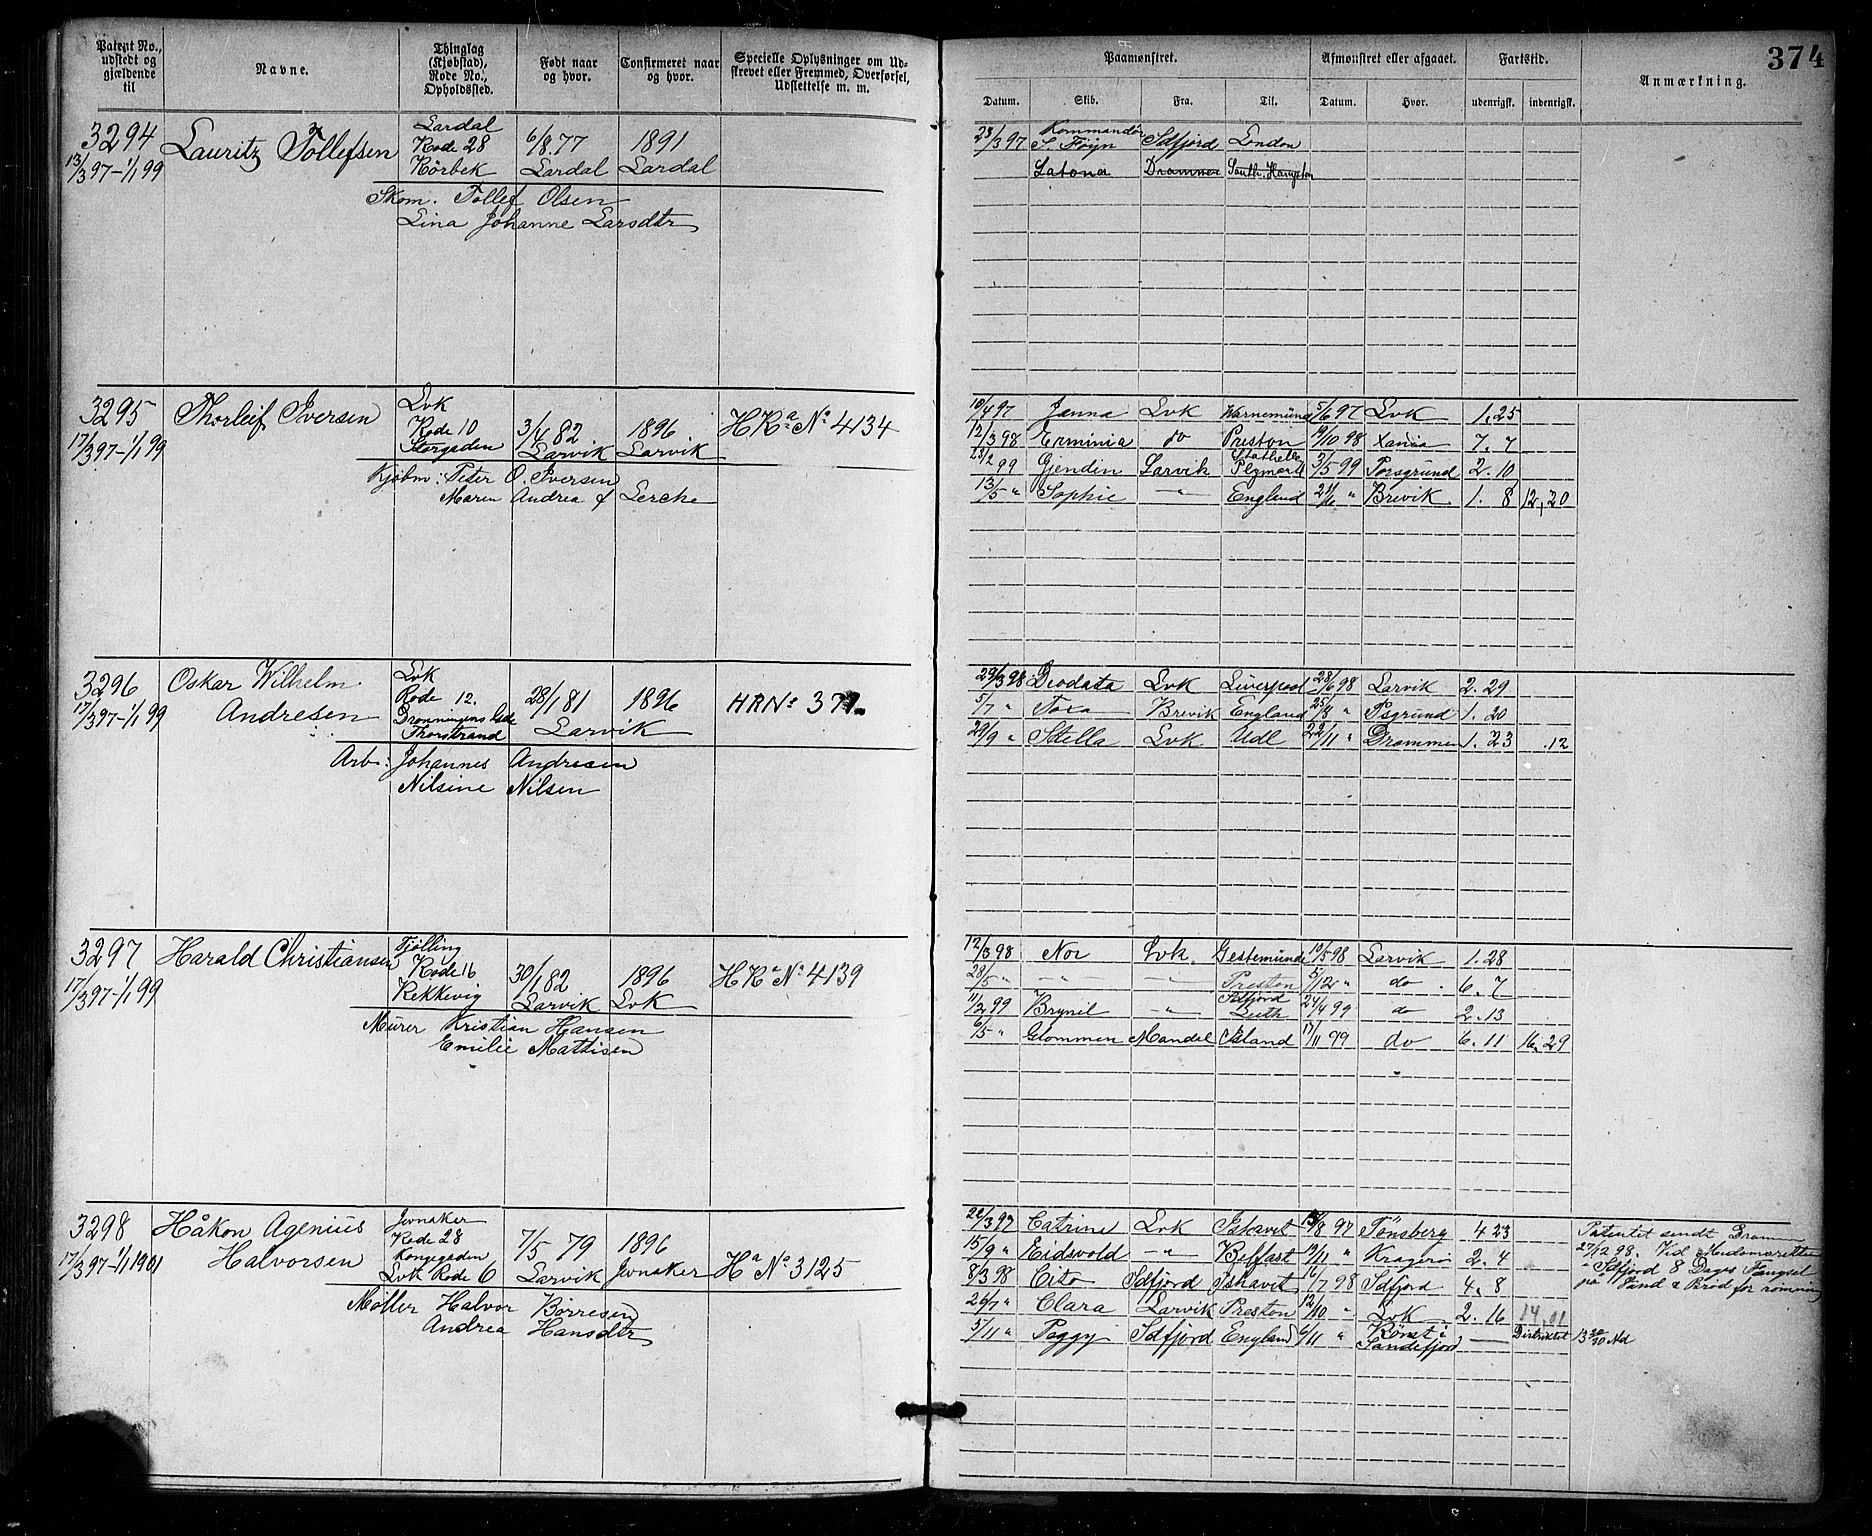 374
Patent No., udstedt og gjældende til
Navne.
Thinglag (Kjøbstad), Rode No., Opholdssted.
Født naar og hvor.
Confirmeret naar og hvor.
Specielle Oplysninger om Udskrevet eller Fremmed, Overførsel, Udslettelse m. m.
Paamønstret.
Afmønstret eller afgaaet.
Fartstid.
Anmærkning.
Datum. Skib. Fra. Til. Datum. Hvor. udenrigsk. indenrigsk.
3294 Lauritz Tollefsen Lardal
Rode 28 6/8.77 1891
13/3 97-1/1 99 Kørbek Lardal Lardal
Skom. Tollef Olsen
Lina Johanne Larsdtr
23/3 97 Kommandør S. Föyn Sdfjord London
Latona Drammen South Hampton
3295 Thorleif Iversen Lvk
Rode 10 3/4 82 1896 H Ra No 4134
17/3 97-1/1 99 Storgaden Larvik Larvik
Kjøbm: Peter O. Iversen
Maren Andrea f Lerche
10/4 97 Janna Lvk Warnemünde 5/6 97 Lvk 1.25
12/3 98 Erminia do Preston 19/10 98 Xania 7.7
23/2 99 Gjendin Larvik Stathelle Plymouth 3/5 99 Porsgrund 2.10
13/5 " Sophie -"- England 21/6 " Brevik 1.8 12,20
3296 Oskar Wilhelm Lvk
Andresen Rode 12. 28/1 81 1896 HRNo 371.
17/3 97-1/1 99 Dronningens Gade
Thorstrand Larvik
Arb: Johannes Andresen
Nilsine Nilsen
29/3 98 Deodata Lvk Liverpool 28/6 98 Larvik 2.29
5/7 " Brevik England 25/8 " Psgrund 1.20
29/9 " Stella Lvk Udl 22/11 " Drammen 1.23 .12
3297 Harald Christiansen Tjølling
Rode 16 30/1 82 1896 H Ra No 4139
17/3 97-1/1 99 Rekkevig Larvik Lvk
Murer Kristian Hansen
Emilie Mathisen
12/3 98 Nor Lvk. Gestemünde 10/5 98 Larvik 1.28
28/5 " -"- -"- Preston 5/12 " do. 6.7
11/2 99 Brynil -"- Sdfjord Leith 24/4 99 do 2.13
6/5 " Glommen Mandal Island 17/11 99 do 6.11 16.29
3298 Håkon Agenius Jevnaker
Halvorsen Rode 28 7/5 79 1896
17/3 97-1/1 1901 Kongegaden
Lvk Rode 6 Larvik Jevnaker Ha No 3125
Møller Halvor Børresen
Andrea Hansdtr
22/3 97 Catrine Lvk Ishavet 15/8 97 Tönsberg 4 23
15/9 " Eidsvold -"- Belfast 19/11 " Kragerö 2.4
8/3 98 Cito Sdfjord Ishavet 16/7 98 Sdfjord 4.8
26/7 " Clara Larvik Preston 12/10 " Lvk 2.16 14,01
5/11 " Peggy Sdfjord England 6/11 " Rømt i Sandefjord — Distriktet
Patentet sendt Drammen
27/12 98. Vid Meddomsretten
i Sdfjord 8 Dages Fængsel
på Vand & Brød for rømning
13 20/30 Nd